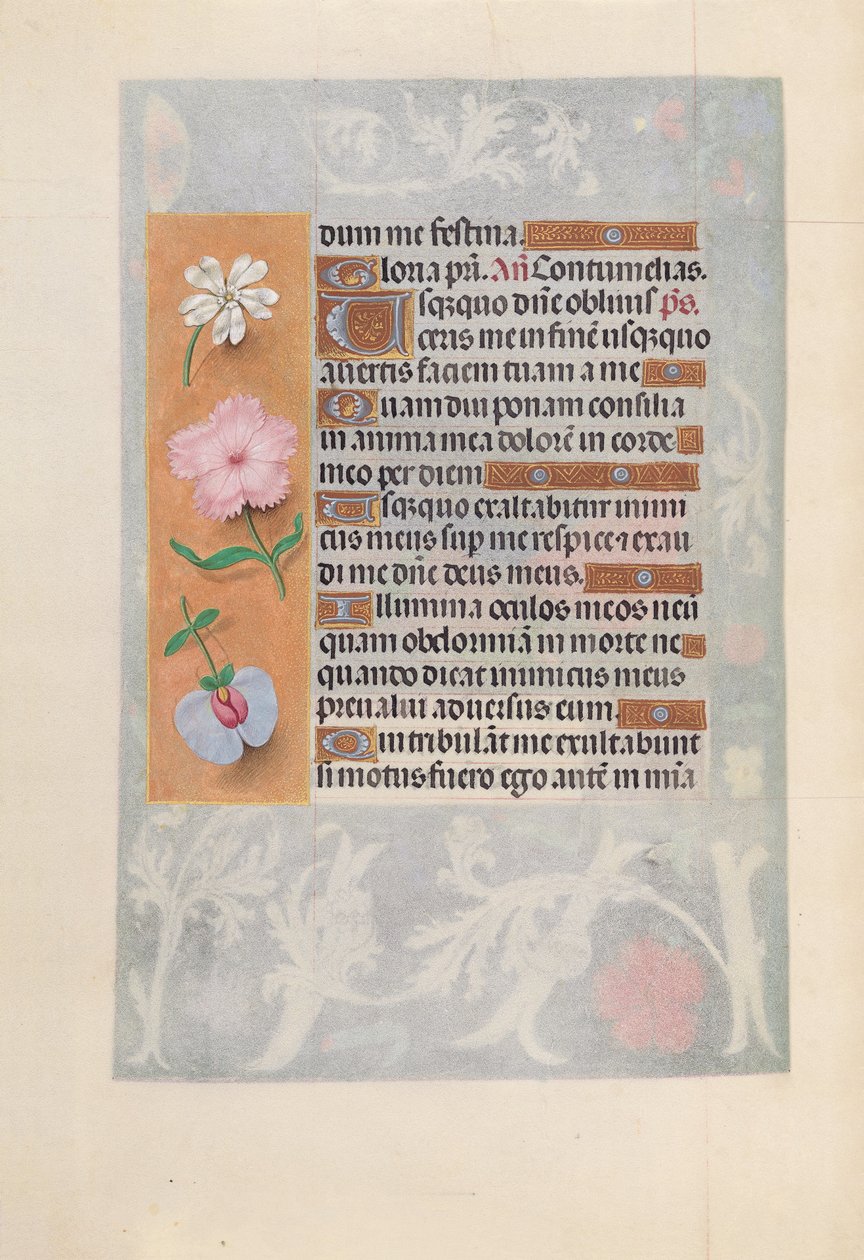 dum me festina.
Gloria pr̄i. An̄ Contumelias.
Usq̄ quo dn̄e obliuis p̄s.
ceris me in finē usq̄ quo
auertis faciem tuam a me
Quam diu ponam consilia
in anima mea dolorē in corde
meo per diem
Usq̄ quo exaltabitur inimi
cus meus sup̄ me respice ⁊ exau
di me dn̄e deus meus.
Illumina oculos meos neū
quam obdormiā in morte ne
quando dicat inimicus meus
preualui aduersus eum.
Qui tribulāt me exultabunt
si motus fuero ego autē in mīa